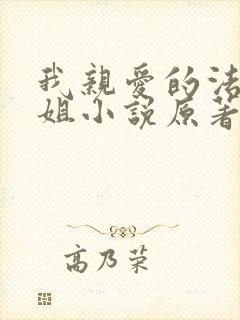 我親愛的法
姐小說原著
高乃荣